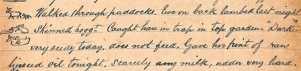 Walked through paddocks. Ewe on back lambed last night
Skinned hogg. Caught hare in trap in top garden. "Dark
very seedy today, does not feed. Gave her pint of raw
linseed oil tonight. Scarcely any milk, udder very hard.